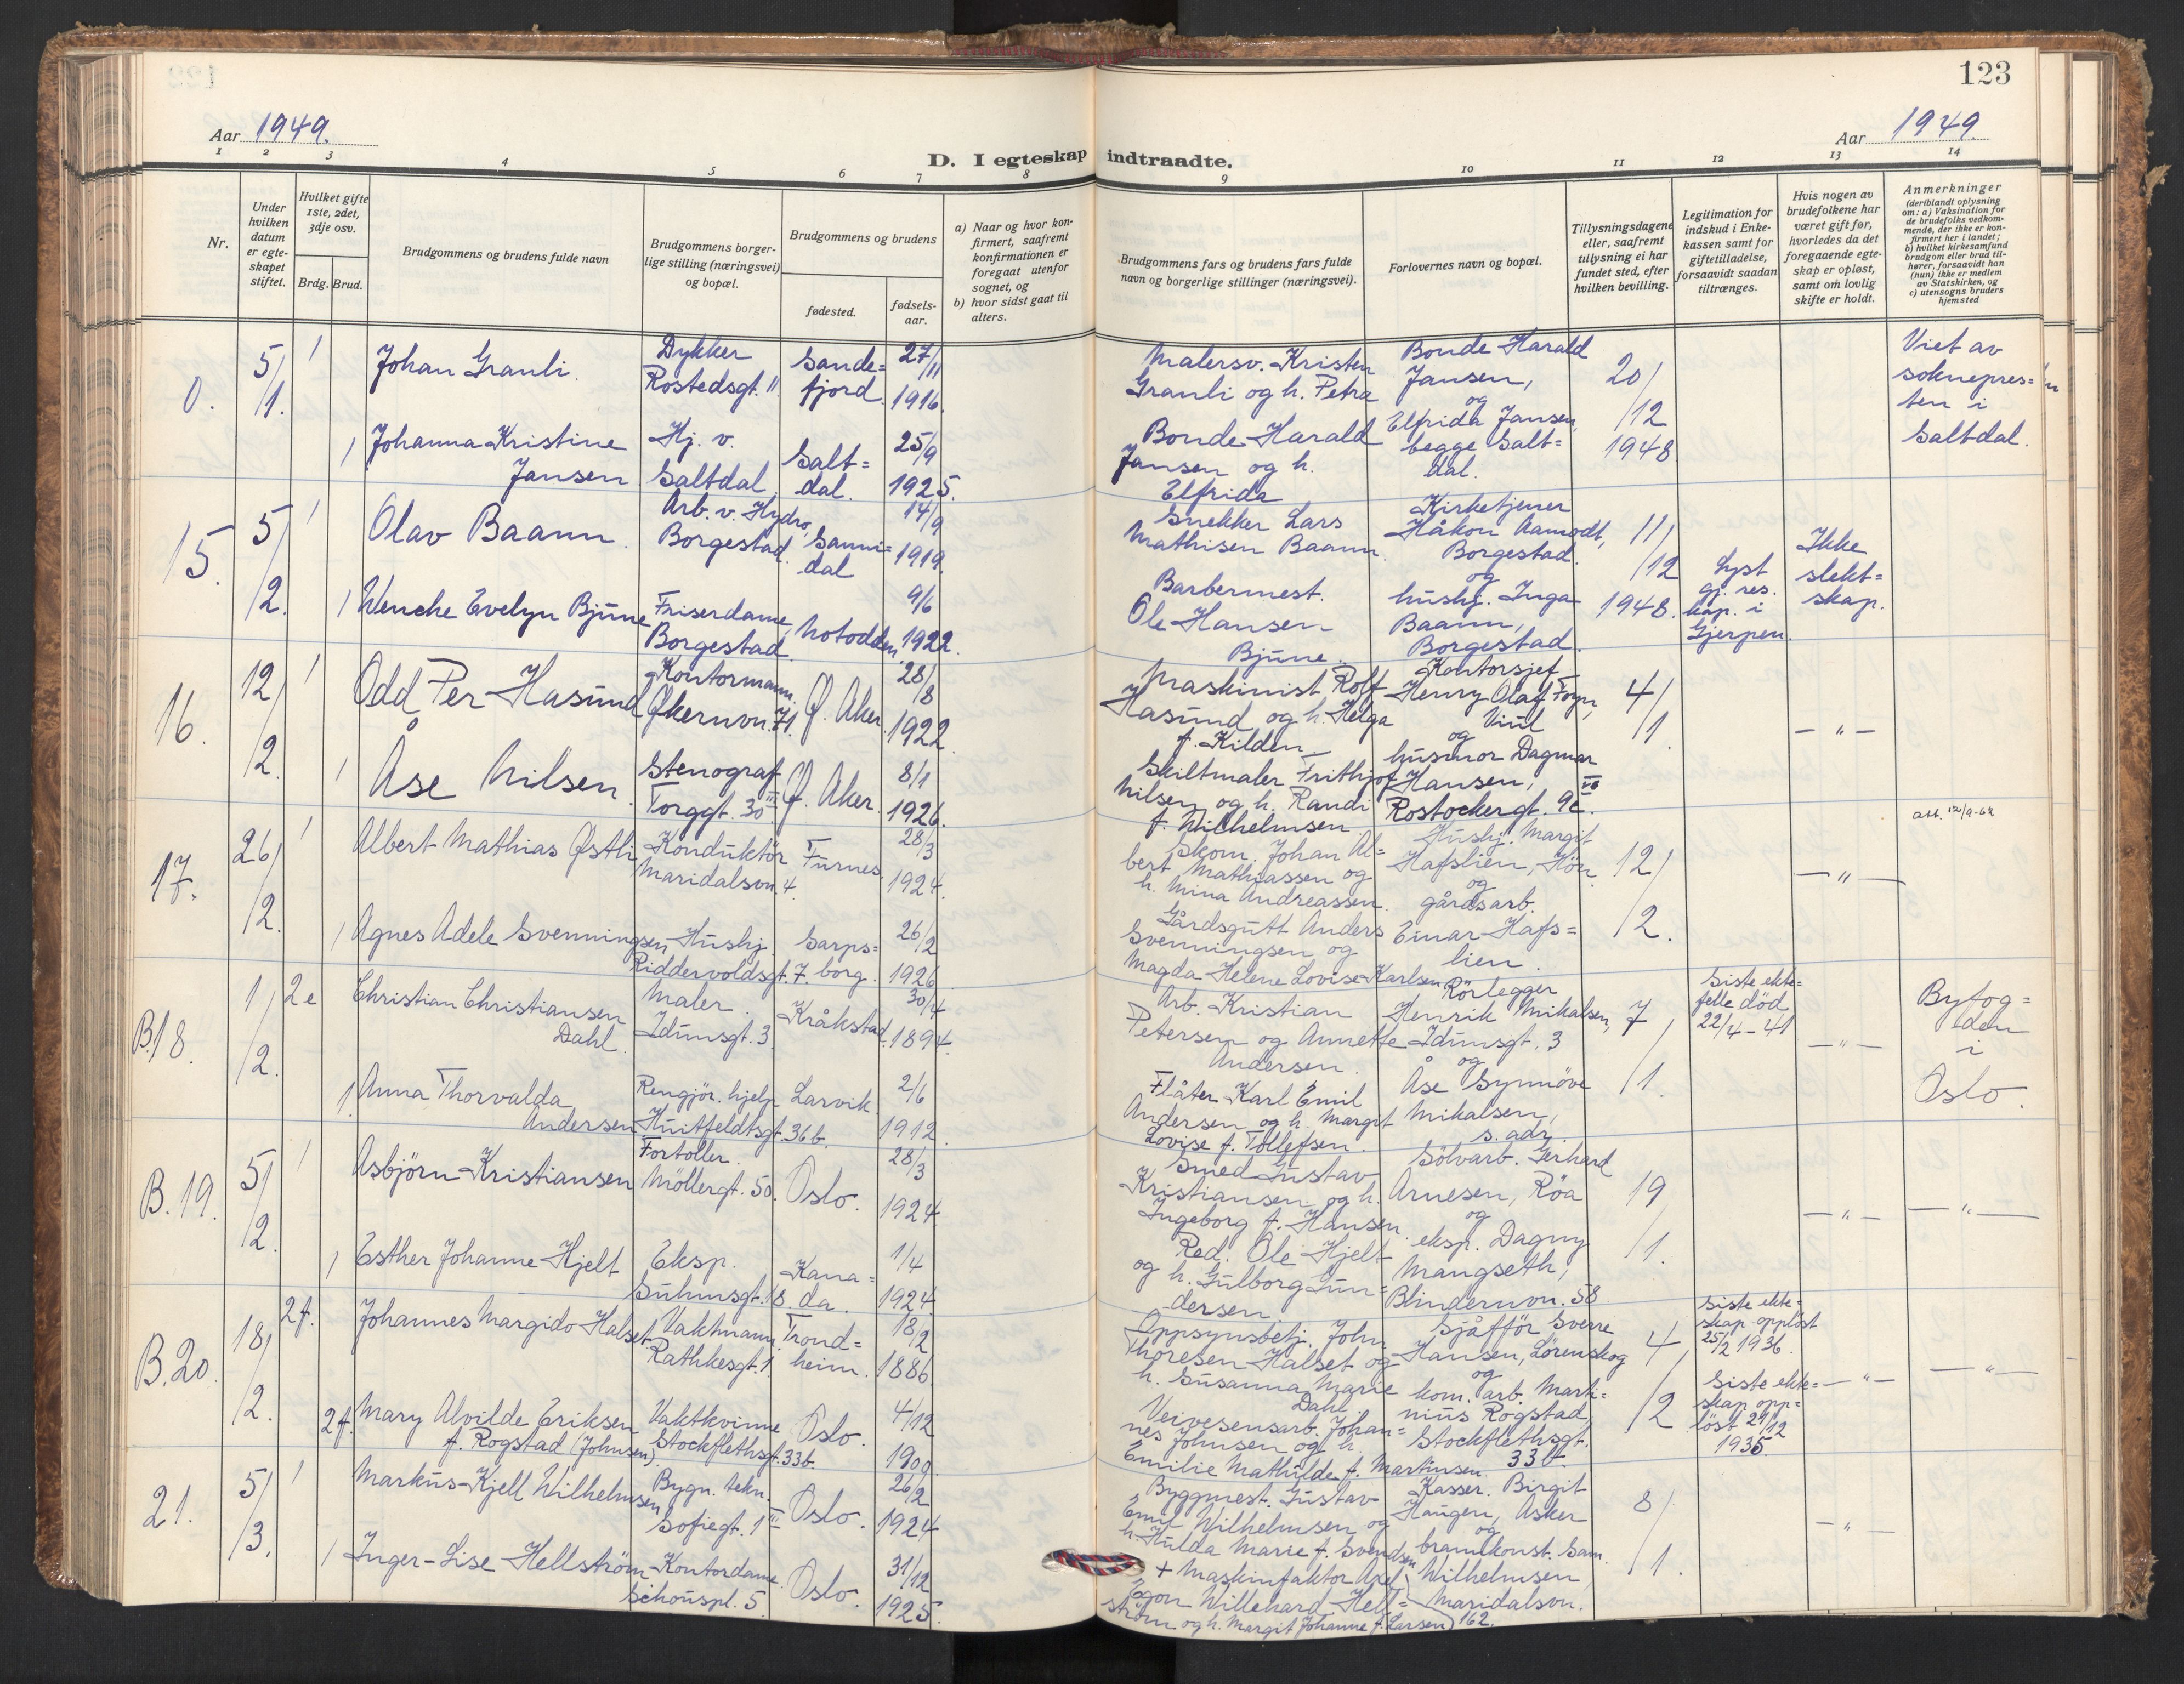 123
Aar 1949.
D. I egteskap indtraadte.
Aar 1949
1 2 3 4 5 6 7 8 9 10 11 12 13 14
Nr.
Under hvilken datum er egteskapet stiftet.
Hvilket gifte 1ste, 2det, 3dje osv.
Brdg. Brud.
Brudgommens og brudens fulde navn
Brudgommens borgerlige stilling (næringsvei) og bopæl.
Brudgommens og brudens
fødested.
fødselsaar.
a) Naar og hvor konfirmert, saafremt konfirmationen er foregaat utenfor sognet, og
b) hvor sidst gaat til alters.
Brudgommens fars og brudens fars fulde navn og borgerlige stillinger (næringsvei).
Forlovernes navn og bopæl.
Tillysningsdagene eller, saafremt tillysning ei har fundet sted, efter hvilken bevilling.
Legitimation for indskud i Enkekassen samt for giftetilladelse, forsaavidt saadan tiltrænges.
Hvis nogen av brudefolkene har været gift før, hvorledes da det foregaaende egteskap er opløst, samt om lovlig skifte er holdt.
Anmerkninger (deriblandt oplysning om: a) Vaksination for de brudefolks vedkommende, der ikke er konfirmert her i landet; b) hvilket kirkesamfund brudgom eller brud tilhører, forsaavidt han (hun) ikke er medlem av Statskirken, og c) utensogns bruders hjemsted
0. 5/1. 1 Johan Granli. Dykker Rostedsgt. 11 Sande=fjord 27/11 1916.
Malersv. Kristen Granli og h. Petra
Bonde Harald Jansen, og Elfrida Jansen, begge Salt=dal.
20/12 1948
Viet av soknepres=ten i Saltdal.
1 Johanna Kristine Jansen Hj. v. Saltdal Salt=dal. 25/9 1925.
Bonde Harald Jansen og h. Elfrida
15. 5/2. 1 Olav Baann. Arb. v. Hydro, Borgestad. Sanni=dal 14/9 1919.
Snekker Lars Mathisen Baann.
Kirketjener Håkon Aamodt, Borgestad. og hushj. Inga Baann, Borgestad.
11/12 1948.
Lyst gj. res. kap. i Gjerpen.
Ikke slekt=skap.
1 Wenche Evelyn Bjune Friserdame, Borgestad. Notodden 9/6 1922.
Barbermest. Ole Hansen Bjune.
16. 12/2. 1 Odd Per Hasund Kontormann. Økernvn. 71. Ø. Aker 28/8 1922.
Maskinist Rolf Hasund og h. Helga f. Kilden
Kontorsjef Henry Olaf Foyn, Viul og husmor Dagmar Hansen, Rostockergt. 9c.
4/1.
— " —
1 Åse Nilsen. Stenograf Torggt. 30 III Ø. Aker. 8/1 1926.
Skiltmaler Frithjof Nilsen og h. Randi f. Wilhelmsen
17. 26/2. 1 Albert Mathias Østli Konduktör Maridalsvn. 4. Furnes 28/3 1924.
Skom. Johan Al=bert Mathiassen og h. Mina Andreassen.
Hushj. Margit Hafslien, Hön og gårdsarb. Einar Hafs=lien.
12/2.
— " —
att. 12/9-62
1 Agnes Adele Svenningsen Hushj. Riddervoldsgt. 7. Sarps=borg. 26/2 1926
Gårdsgutt Anders Svenningsen og Magda Helene Lovise Karlsen
B.18. 1/2. 2e Christian Christiansen Dahl. Maler. Idunsgt. 3. Kråkstad 30/4 1894.
Arb. Kristian Petersen og Annette Andersen.
Rörlegger Henrik Mikalsen, Idunsgt. 3 og Åse Synnöve Mikalsen, s. adr.
7/1.
Siste ekte=felle död 22/4-41
— " —
Byfog=den i Oslo.
1 Anna Thorvalda Andersen Rengjör. hjelp Huitfeldtsgt. 36b. Larvik 2/6 1912.
Flåter Karl Emil Andersen og h. Margit Lovise f. Tollefsen.
B.19. 5/2. 1 Asbjörn Kristiansen Fortoller. Möllergt. 50. Oslo. 28/3 1924
Smed Gustav Kristiansen og h. Ingeborg f. Hansen.
Sölvarb. Gerhard Arnesen, Röa og eksp. Dagny Mangseth, Blindernvn. 58
19/1.
— " —
— " —
1 Esther Johanne Hjelt Eksp. Suhmsgt. 18. Kana=da. 1/4 1924
Red. Ole Hjelt og h. Gulborg Gun=dersen.
B.20. 18/2. 2f. Johannes Margido Halset Vaktmann. Rathkesgt. 1. Trond=heim. 18/2 1886
Oppsynsbetj. John Thoresen Halset og h. Susanna Marie Dahl.
Sjåför Sverre Hansen, Lörenskog og kom. arb. Marti=nius Rogstad, Stockflethsgt. 33b.
4/2
Siste ekte=skap opplöst 25/2 1936.
Siste ekte=skap opp=löst 21/12 1935.
— " —
— " —
2f. Mary Alvilde Eriksen f. Rogstad (Johnsen). Vaktkvinne Stockflethsgt. 33b. Oslo. 4/12 1900.
Veivesensarb. Johan=nes Johnsen og h. Emilie Mathilde f. Martinsen.
21. 5/3. 1 Markus Kjell Wilhelmsen Bygn. tekn. Sofiegt. 1 III Oslo. 26/2 1924
Byggmest. Gustav Emil Wilhelmsen og h. Hulda Marie f. Svendsen
Kasser. Birgit Haugen, Asker og brannkonst. Gam. Wilhelmsen, Maridalsvn. 162.
8/1.
— " —
1 Inger-Lise Hellström Kontordame. Schouspl. 5. Oslo. 31/12 1925.
+ Maskinfaktor Axel Egon Willehard Hell=ström og h. Margit Johanne f. Larsen